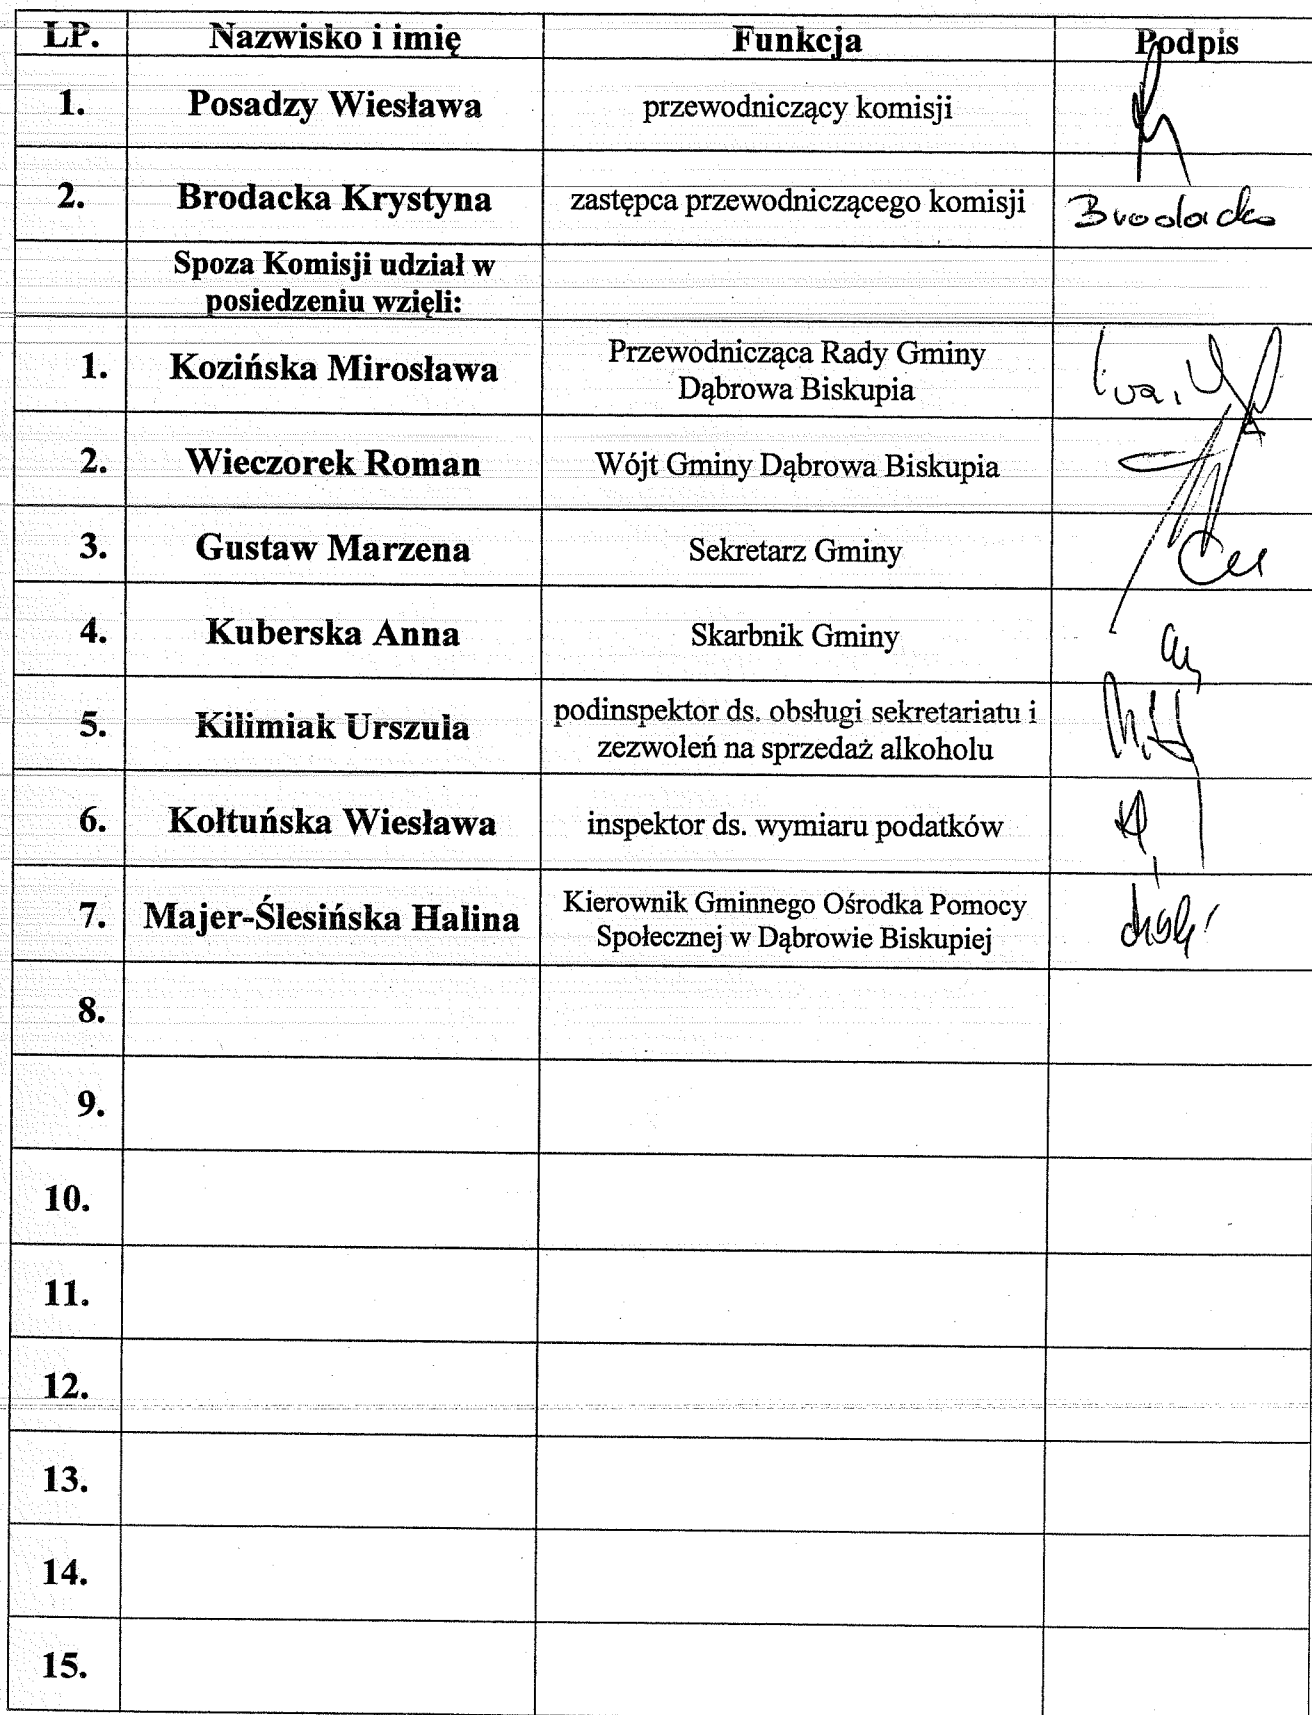 LP. Nazwisko i imię Funkcja Podpis
1. Posadzy Wiesława przewodniczący komisji
2. Brodacka Krystyna zastępca przewodniczącego komisji Brodacka
Spoza Komisji udział w
posiedzeniu wzięli:
1. Kozińska Mirosława Przewodnicząca Rady Gminy
Dąbrowa Biskupia
2. Wieczorek Roman Wójt Gminy Dąbrowa Biskupia
3. Gustaw Marzena Sekretarz Gminy
4. Kuberska Anna Skarbnik Gminy
5. Kilimiak Urszula podinspektor ds. obsługi sekretariatu i
zezwoleń na sprzedaż alkoholu
6. Kołtuńska Wiesława inspektor ds. wymiaru podatków
7. Majer-Ślesińska Halina Kierownik Gminnego Ośrodka Pomocy
Społecznej w Dąbrowie Biskupiej
8.
9.
10.
11.
12.
13.
14.
15.